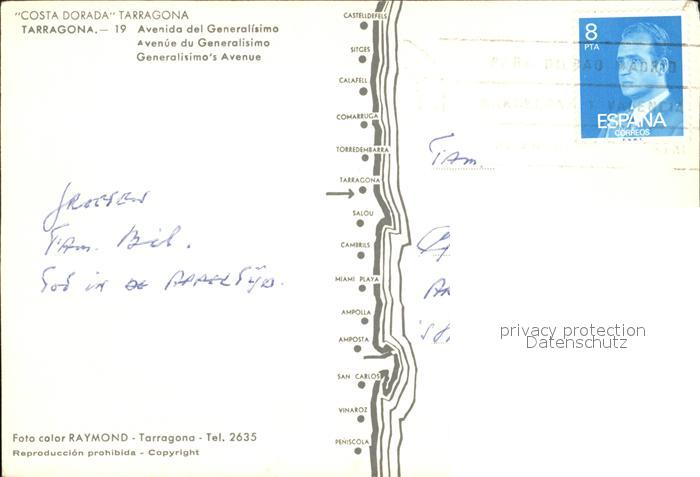 "COSTA DORADA" TARRAGONA
TARRAGONA.— 19 Avenida del Generalísimo
Avenúe du Generalisimo
Generalisimo's Avenue
CASTELLDEFELS
SITGES
CALAFELL
COMARRUGA
TORREDEMBARRA
TARRAGONA
SALOU
CAMBRILS
MIAMI PLAYA
AMPOLLA
AMPOSTA
SAN CARLOS
VINAROZ
PEÑISCOLA
8
PTA
ESPAÑA
CORREOS
Fam.
GROETEN
Fam. Bil.
Tot in de APPELTIJD.
privacy protection
Datenschutz
Foto color RAYMOND - Tarragona - Tel. 2635
Reproducción prohibida - Copyright